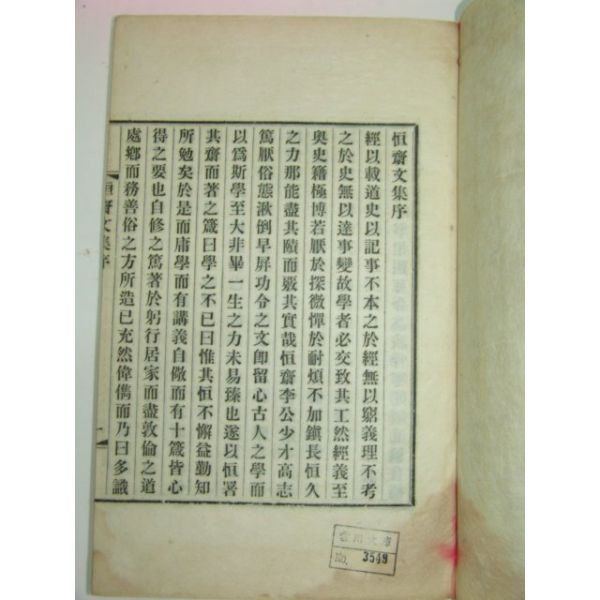 恒齋文集序
經以載道史以記事不本之於經無以窮義理不考
之於史無以達事變故學者必交致其工然經義至
奧史籍極博若厭於探微憚於耐煩不加鎭長恒久
之力那能盡其賾而嚴其實哉恒齋李公少才高志
篤厭俗態湫倒早屛功令之文卽留心古人之學而
以爲斯學至大非畢一生之力未易臻也遂以恒署
其齋而著之箴曰學之不已曰惟其恒不懈益勤知
所勉矣於是而庸學而有講義自儆而有十箴皆心
得之要也自修之篤著於躬行居家而盡敦倫之道
處鄕而務善俗之方所造已充然偉儁而乃曰多識
恒齋文集序
一
文庫
No. 3549